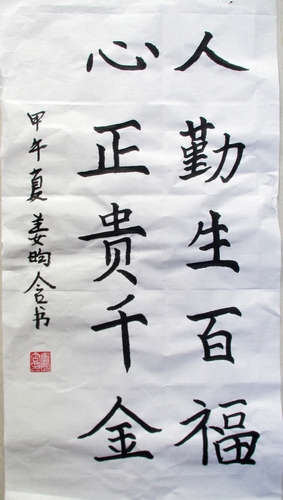 人勤生百福
心正贵千金
甲午夏姜昫含书